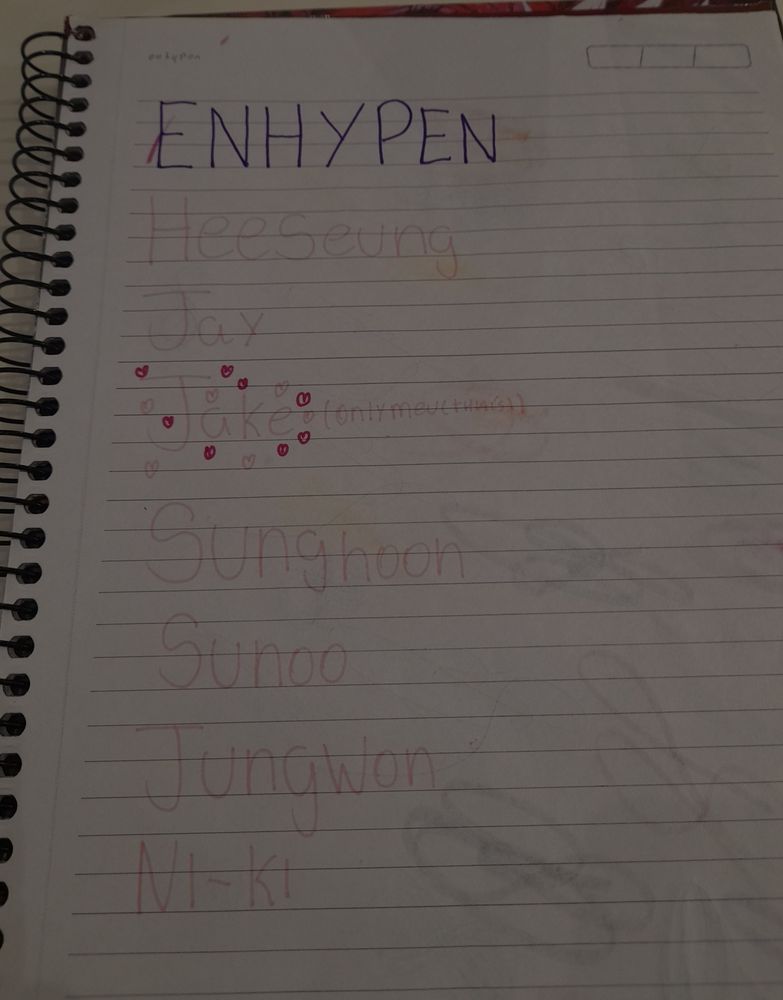 enhypen
ENHYPEN
Heeseung
Jay
Jake
Sunghoon
Sunoo
Jungwon
Ni-ki